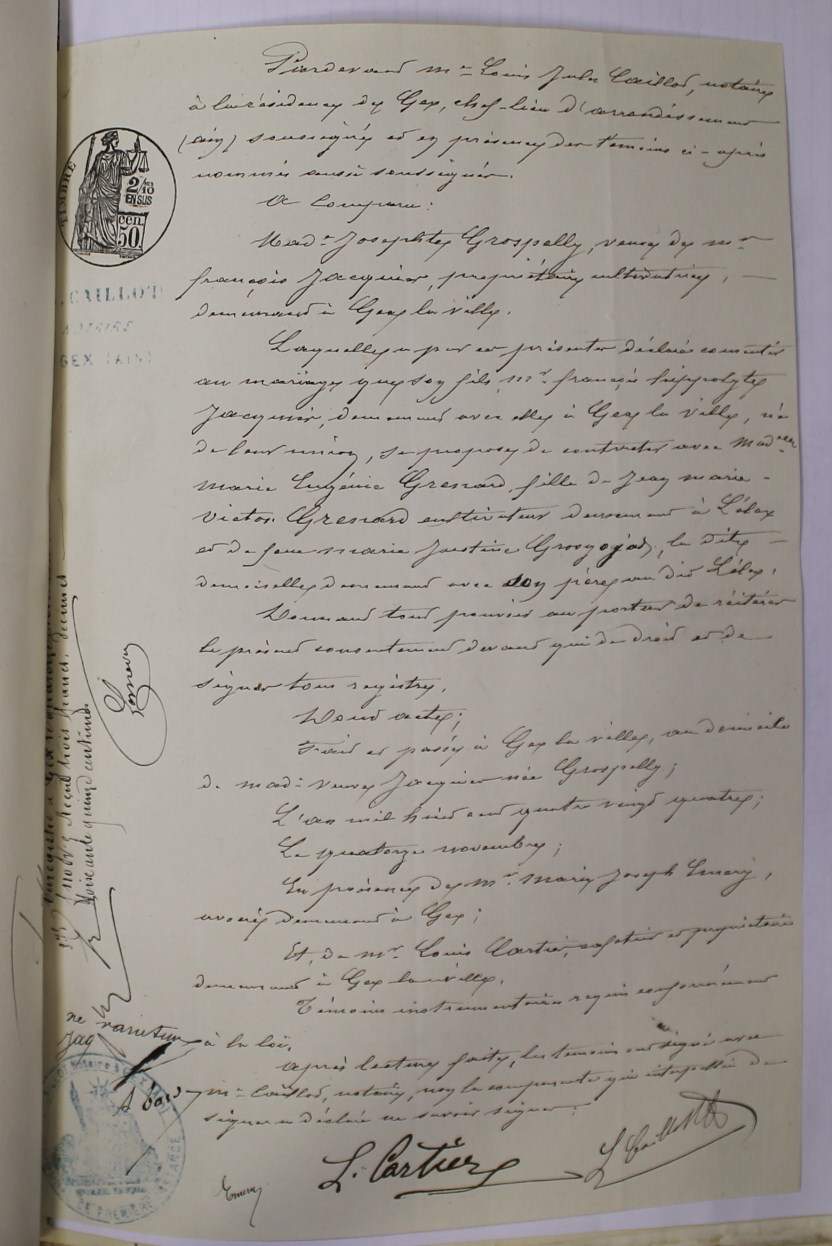 Pardevant Me Louis Jules Caillot, notaire
à la résidence de Gex, chef-lieu d'arrondissement
(ain) soussigné et en présence des témoins ci-après
nommés aussi soussignés.
A Comparu:
Made Josephte Grospelly, veuve de Mr
françois Jacquier, propriétaire cultivatrice,
demeurant à Gex la ville.
Laquelle a par ces présentes déclaré consentir
au mariage que son fils, Mr. françois hippolyte
Jacquier, demeurant avec elle à Gex la ville, né
de leur union, se propose de contracter avec Madelle
Marie Eugénie Grenard, fille de Jean Marie-
Victor Grenard cultivateur demeurant à Lélex
et de feue Marie Justine Grosgojat, la dite
demoiselle demeurant avec son père au dit Lélex.
Donnant tout pouvoir au porteur de réitérer
le présent consentement devant qui de droit et de
signer tous registres.
Dont acte;
Fait et passé à Gex la ville, au domicile
de made veuve Jacquier née Grospelly;
L'an mil huit cent quatre vingt quatre;
Le quatorze novembre;
En présence de Mr. Marie Joseph Emery,
avoué demeurant à Gex;
Et, de Mr Louis Cartier, cafetier et propriétaire
demeurant à Gex la ville.
Témoins instrumentaires requis conformément
à la loi.
après lecture faite, les témoins ont signé avec
Me Caillot, notaire, non la comparante qui interpellée de
signer a déclaré ne savoir signer.
Emery
L. Cartier
L Caillot
TIMBRE
2/10
EN SUS
cen
50
CAILLOT
NOTAIRE
GEX (AIN)
Enregistré à Gex le
Reçu trois francs, décimes
soixante quinze centimes
ne varietur